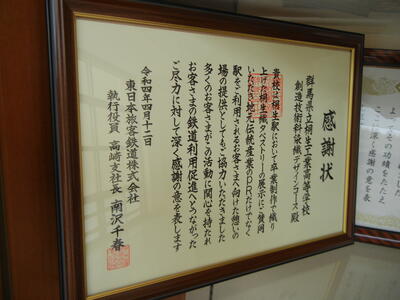 感謝状
群馬県立桐生工業高等学校
創造技術科染織デザインコース 殿
貴校は桐生駅において卒業制作で織り
上げた桐生織タペストリーの展示にご賛同
いただき地元伝統産業のPRだけでなく
駅をご利用されるお客さまへ向けた憩いの
場の提供としてもご協力いただきました
多くのお客さまがこの活動に関心を持たれ
お客さまの鉄道利用促進へとつながった
ご尽力に対して深く感謝の意を表します
令和四年四月十二日
東日本旅客鉄道株式会社
執行役員 高崎支社長 南沢千春